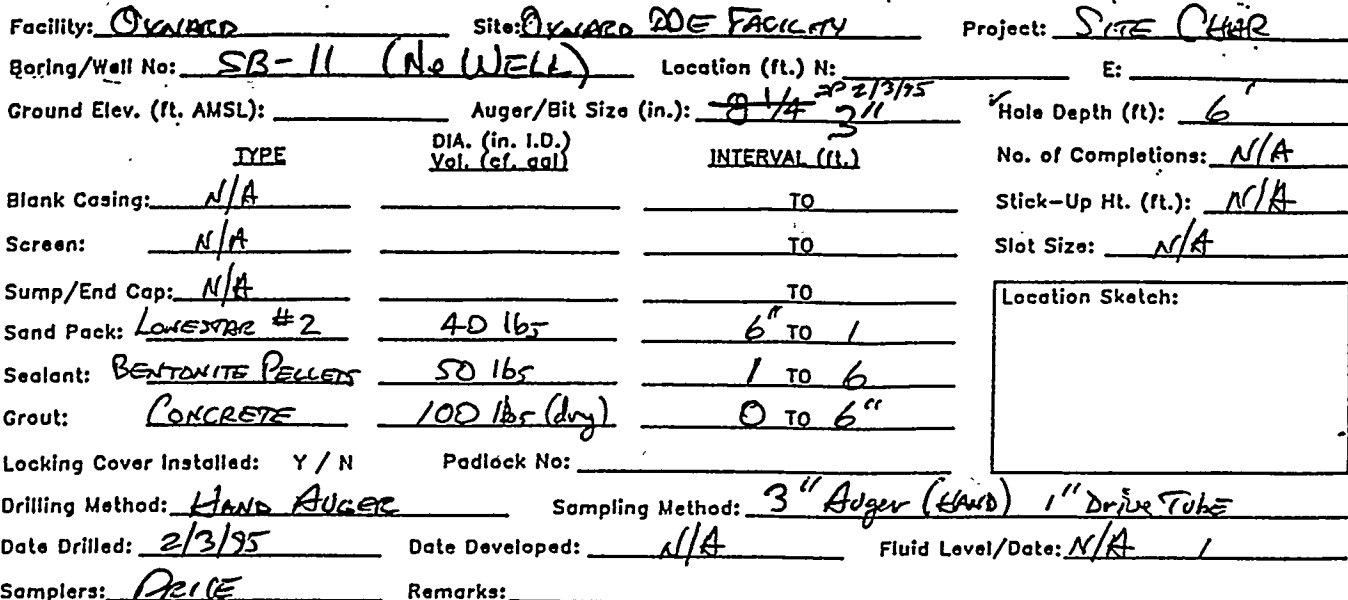 Facility: OXNARD Site: OXNARD DOE FACILITY Project: SITE CHAR
Boring/Well No: SB-11 (No WELL) Location (ft.) N: E:
Ground Elev. (ft. AMSL): Auger/Bit Size (in.): 8 1/4 3" 2/3/95 Hole Depth (ft): 6'
TYPE DIA. (in. I.D.) Vol. (cf. gal) INTERVAL (ft.) No. of Completions: N/A
Blank Casing: N/A TO Stick-Up Ht. (ft.): N/A
Screen: N/A TO Slot Size: N/A
Sump/End Cap: N/A TO Location Sketch:
Sand Pack: LONESTAR #2 40 lbs 6" TO 1
Sealant: BENTONITE PELLETS 50 lbs 1 TO 6
Grout: CONCRETE 100 lbs (dry) 0 TO 6"
Locking Cover Installed: Y / N Padlock No:
Drilling Method: HAND AUGER Sampling Method: 3" Auger (HAND) 1" Drive TUBE
Date Drilled: 2/3/95 Date Developed: N/A Fluid Level/Date: N/A /
Samplers: PRICE Remarks: